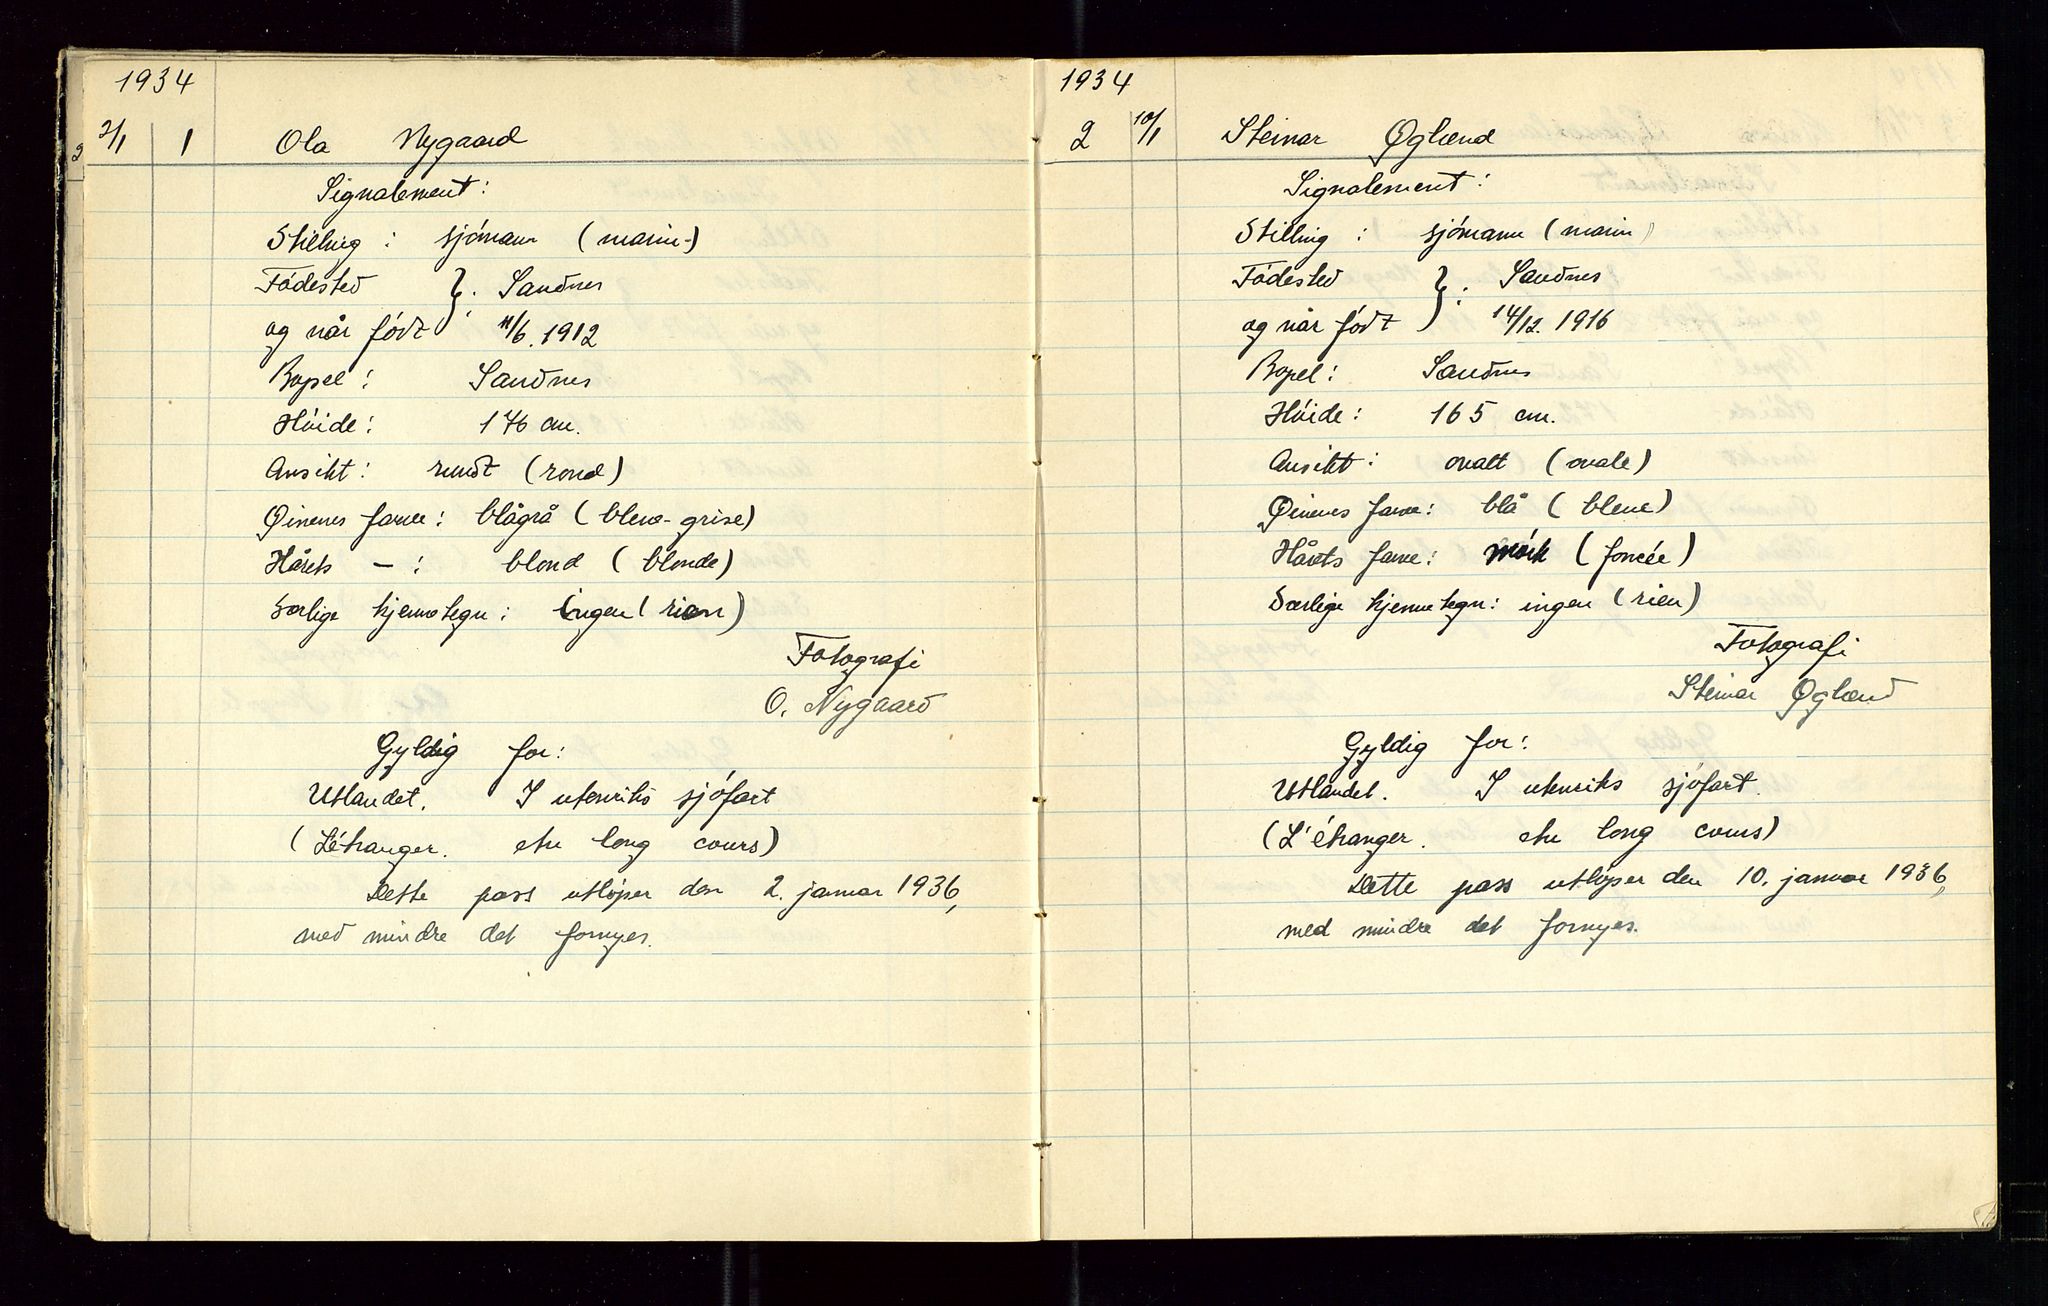 1934
2/1 1 Ola Nygaard
Signalement:
Stilling: sjømann (marin-)
Födested } : Sandnes
og når född 11/6. 1912
Bopel: Sandnes
Höide: 176 cm.
Ansikt: rundt (rond)
Øinenes farve: blågrå (bleue-grise)
Hårets — : blond (blonde)
Særlige kjennetegn: ingen (rien)
Fotografi
O. Nygaard
Gyldig for:
Utlandet. I utenriks sjöfart
(L'étranger. long cours)
Dette pass utlöper den 2. januar 1936,
med mindre det fornyes.
1934
2 10/1 Steinar Øglænd
Signalement:
Stilling: sjómann (marin)
Födested } : Sandnes
og når född 14/12. 1916
Bopel: Sandnes
Höide: 165 cm.
Ansikt: ovalt (ovale)
Øinenes farve: blå (bleue)
Hårets farve: mörk (foncée)
Særlige kjennetegn: ingen (rien)
Fotografi
Steinar Øglænd
Gyldig for:
Utlandet. I utenriks sjöfart.
(L'étranger. long cours)
Dette pass utlöper den 10. januar 1936,
med mindre det fornyes.